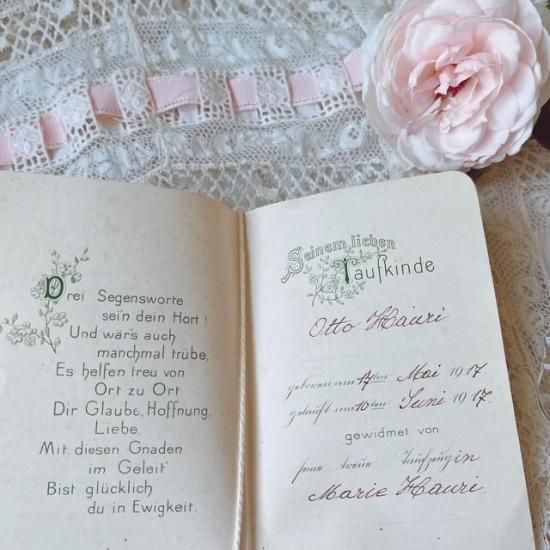 Drei Segensworte
sei'n dein Hort!
Und wär's auch
manchmal trübe,
Es helfen treu von
Ort zu Ort
Dir Glaube, Hoffnung,
Liebe.
Mit diesen Gnaden
im Geleit
Bist glücklich
du in Ewigkeit.
Seinem lieben
Taufkinde
Otto Hauri
geboren am 17ten Mai 1917
getauft am 10ten Juni 1917
gewidmet von
seine treue Taufzeugin
Marie Hauri.